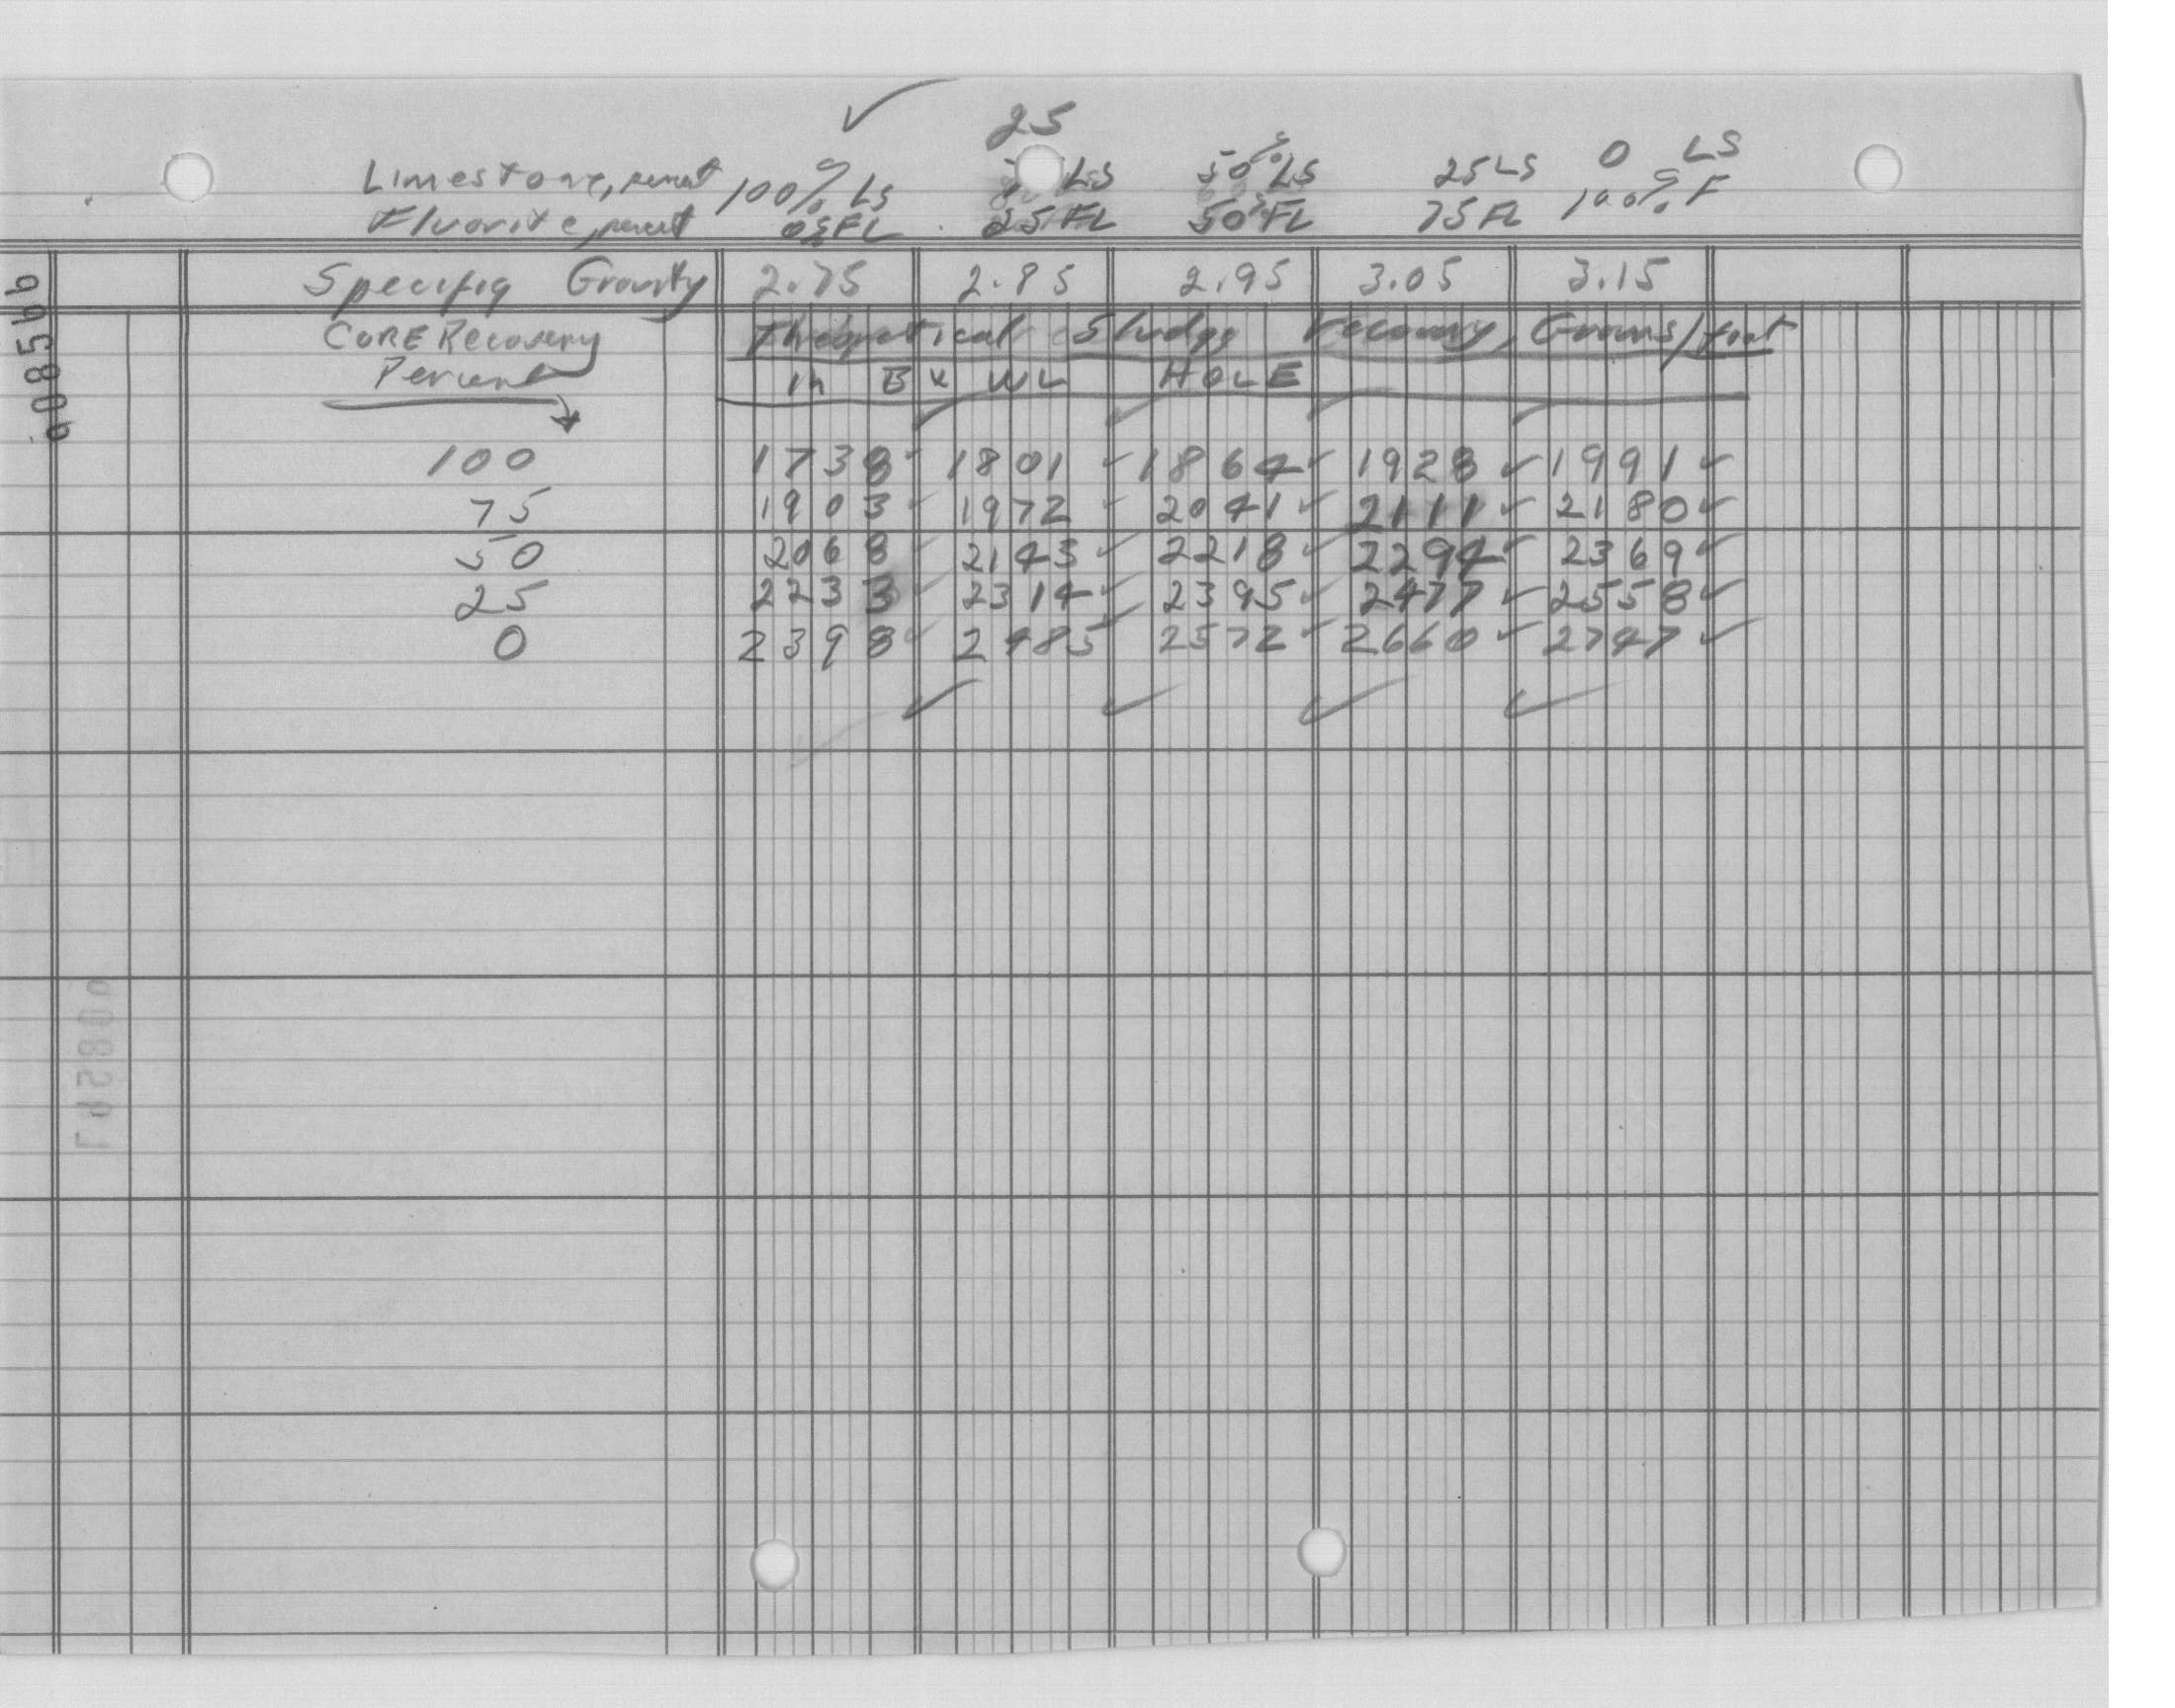 25
Limestone, percent 100% LS LS 50% LS 25 LS 0 LS
Fluorite, percent 0% FL 25 FL 50% FL 75 FL 100% F
Specific Gravity 2.75 2.85 2.95 3.05 3.15
CORE Recovery Theoretical Sludge recovery, Grams/foot
Percent in BX WL HOLE
100 1738 1801 1864 1928 1991
75 1903 1972 2041 2111 2180
50 2068 2143 2218 2294 2369
25 2233 2314 2395 2477 2558
0 2398 2485 2572 2660 2747